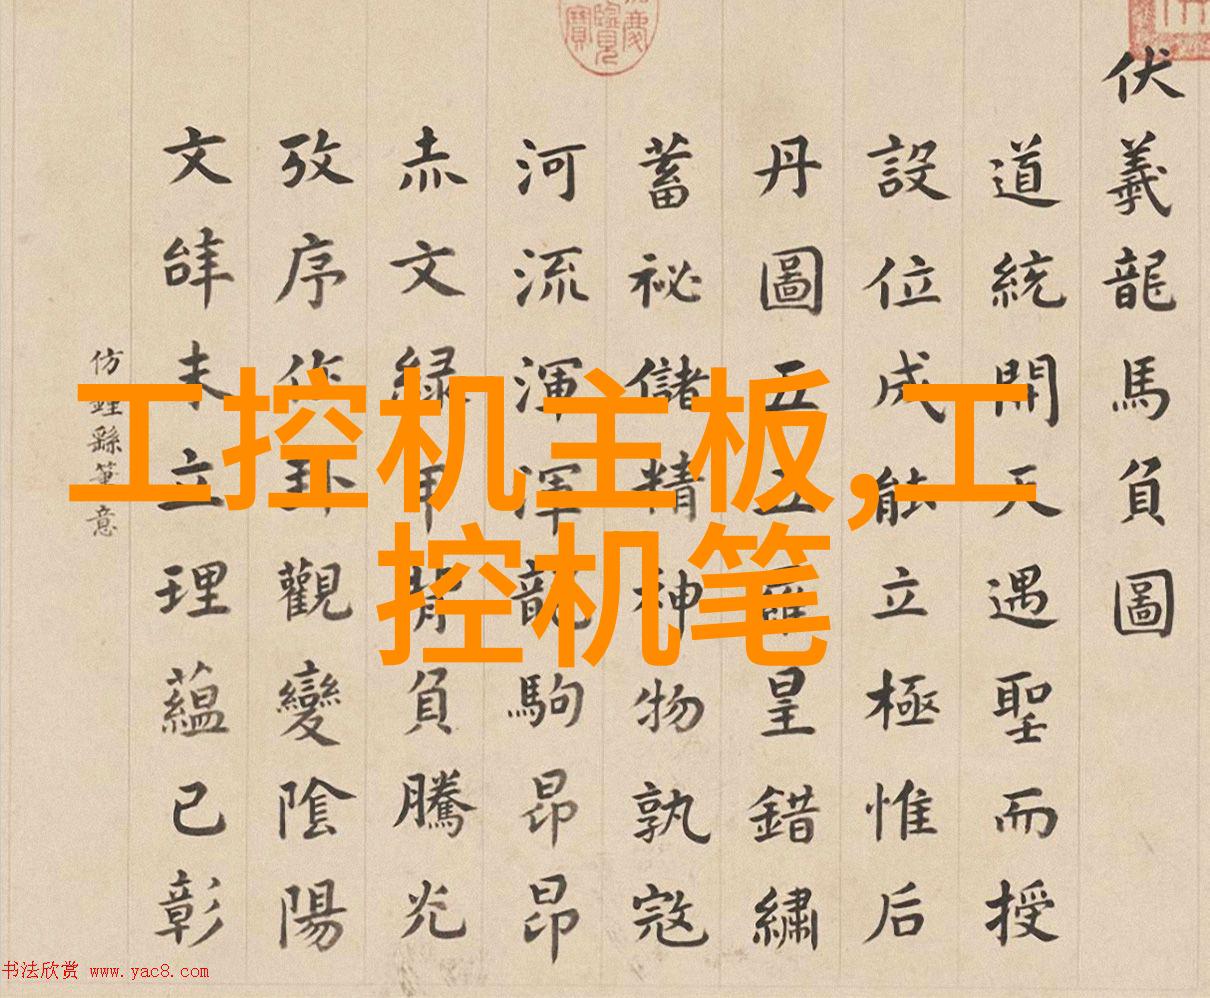 伏羲龍馬負圖
道統開天遇聖而授
設位成能立極惟后
丹圖五五皇錯繡
蓄祕儲精神物孰寇
河流渾渾龍駒昂昂
赤文綠甲背負騰光
攷序作卦觀變陰陽
文辝未立理蘊已彰
仿鍾繇筆意
工控机主板,工
控机笔
书法欣赏 www.yac8.com